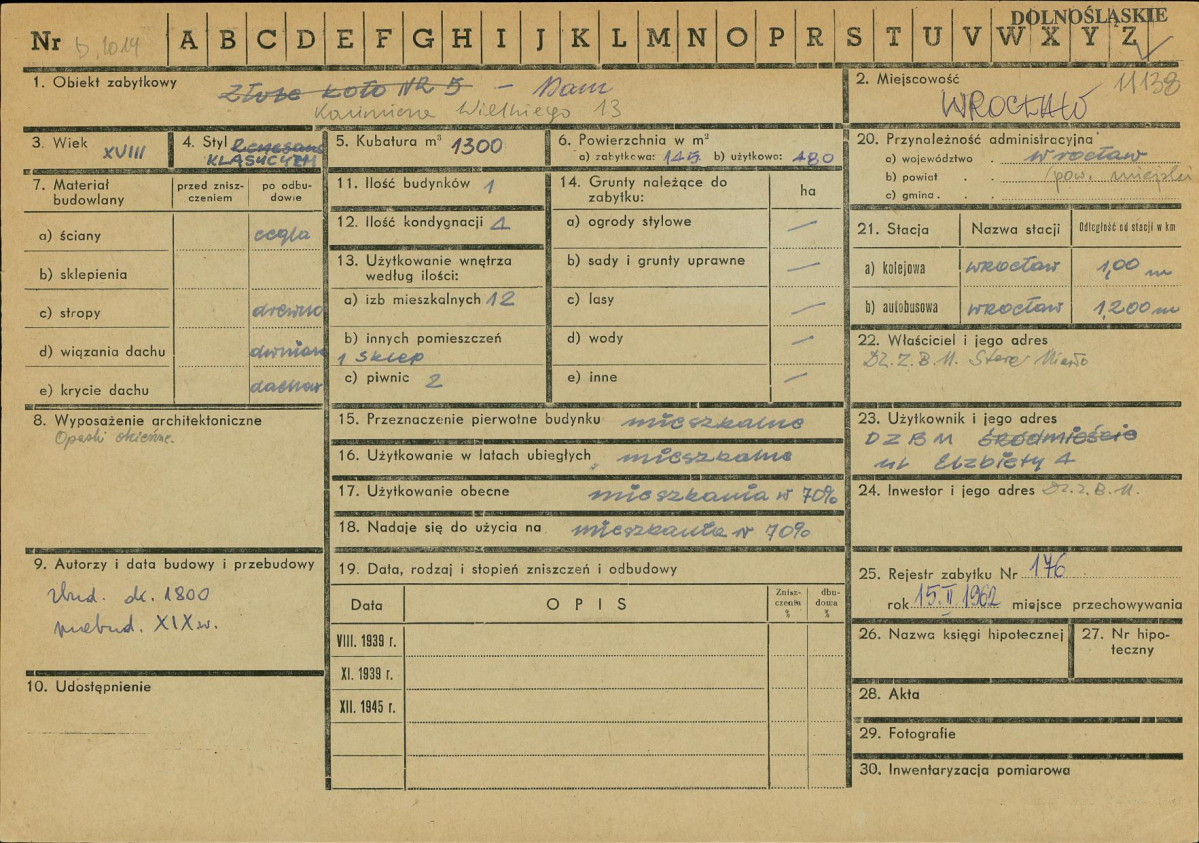 DOLNOŚLĄSKIE
Nr b,1014 A B C D E F G H I J K L M N O P R S T U V W X Y Z
11138
1. Obiekt zabytkowy Złote Koło NR 5 – Dom
Kazimierza Wielkiego 13
2. Miejscowość
WROCŁAW
3. Wiek XVIII
4. Styl Renesans
KLASYCYZM
5. Kubatura m³ 1300
6. Powierzchnia w m²
a) zabytkowa: 145 b) użytkowa: 480
20. Przynależność administracyjna
a) województwo Wrocław
b) powiat pow. miejski
c) gmina
7. Materiał budowlany
przed zniszczeniem
po odbudowie
a) ściany cegła
b) sklepienia
c) stropy drewno
d) wiązania dachu
e) krycie dachu
8. Wyposażenie architektoniczne
Opaski okienne.
9. Autorzy i data budowy i przebudowy
zbud. ok. 1800
przebud. XIX w.
10. Udostępnienie
11. Ilość budynków 1
12. Ilość kondygnacji 4
13. Użytkowanie wnętrza
według ilości:
a) izb mieszkalnych 12
b) innych pomieszczeń
1 sklep
c) piwnic 2
14. Grunty należące do
zabytku:
ha
a) ogrody stylowe —
b) sady i grunty uprawne —
c) lasy —
d) wody —
e) inne —
15. Przeznaczenie pierwotne budynku mieszkalne
16. Użytkowanie w latach ubiegłych mieszkalne
17. Użytkowanie obecne mieszkania w 70%
18. Nadaje się do użycia na mieszkania w 70%
19. Data, rodzaj i stopień zniszczeń i odbudowy
Data OPIS Zniszczenia % dbudowa %
VIII. 1939 r.
XI. 1939 r.
XII. 1945 r.
21. Stacja Nazwa stacji Odległość od stacji w km
a) kolejowa Wrocław 1,00 m
b) autobusowa Wrocław 1,200 m
22. Właściciel i jego adres
Dz. Z. B. M. Stare Miasto
23. Użytkownik i jego adres
DZBM Śródmieście
ul Elżbiety 4
24. Inwestor i jego adres Dz. Z. B. M.
25. Rejestr zabytku Nr 176
rok 15.II 1962 miejsce przechowywania
26. Nazwa księgi hipotecznej
27. Nr hipoteczny
28. Akta
29. Fotografie
30. Inwentaryzacja pomiarowa